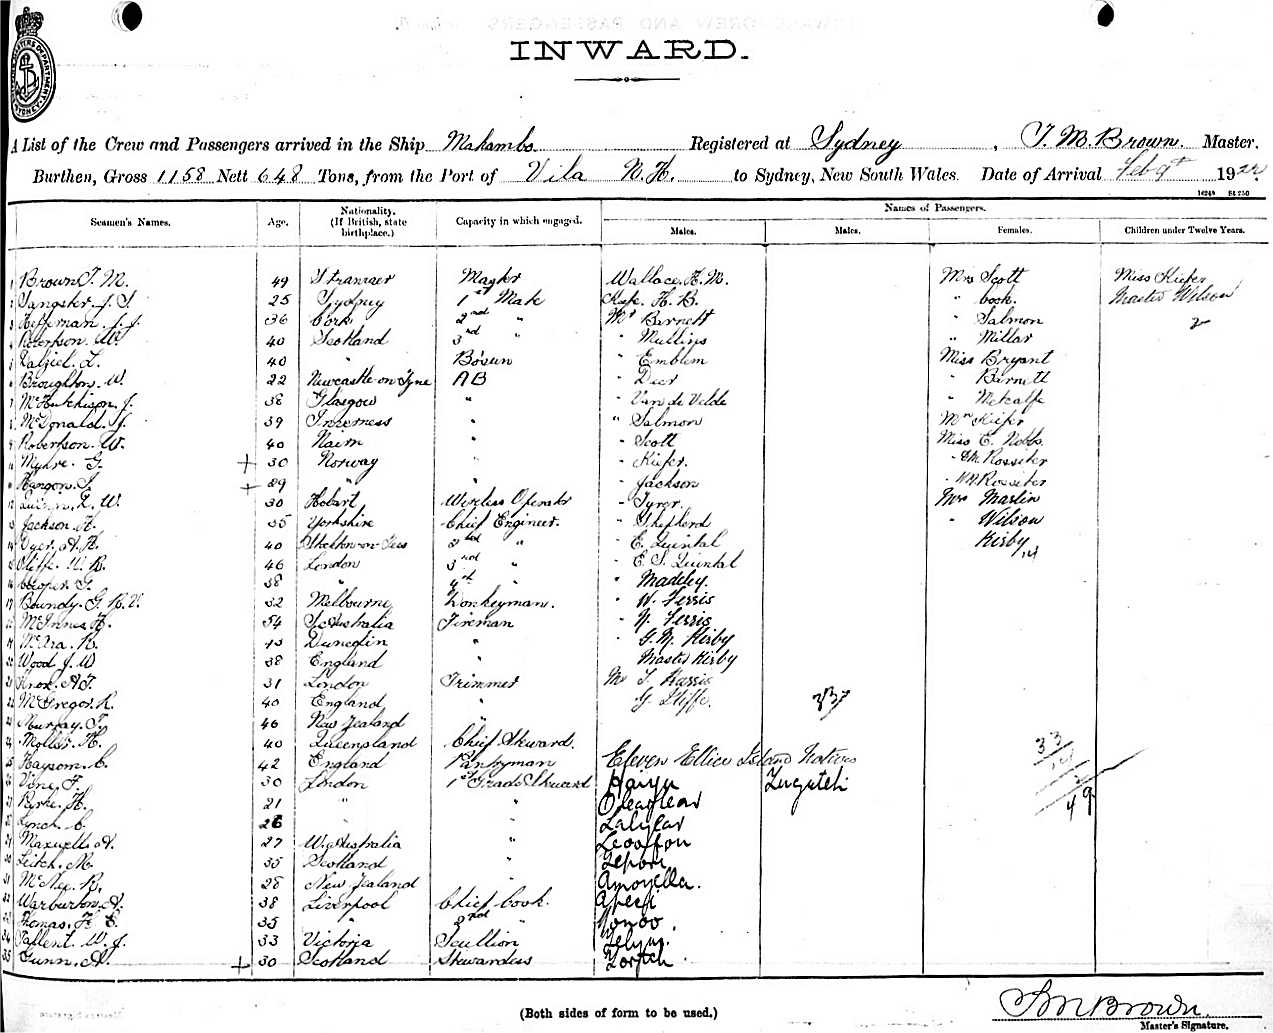 INWARD.
A List of the Crew and Passengers arrived in the Ship Makambo Registered at Sydney, T. M. Brown. Master.
Burthen, Gross 1158 Nett 648 Tons, from the Port of Vila N. H. to Sydney, New South Wales. Date of Arrival Feb 9th 1922
16248 St 250
Names of Passengers.
Seamen's Names. Age. Nationality. (If British, state birthplace.) Capacity in which engaged. Males. Males. Females. Children under Twelve Years.
1 Brown T. M. 49 Stranraer Master Wallace. H. M. Mrs Scott Miss Kiefer
2 Sangster. J. S. 25 Sydney 1st Mate H. B. " Cook. Master Wilson
3 Heffernan. J. J. 36 Cork 2nd " Mr Barnett " Salmon 2
4 Robertson. W. 40 Scotland 3rd " " Mullins " Millar
5 Dalziel. L. 40 " Bosun " Emblem Miss Bryant
6 Broughton. W. 22 Newcastle-on-Tyne AB " " Barnett
7 McHutchison. J. 38 Glasgow " " Van de Velde " Metcalfe
8 McDonald. J. 39 Inverness " " Salmon Mrs Kiefer
9 Robertson. W. 40 Nairn " " Scott Miss E. Nobbs
10 Myhre. G. + 30 Norway " " Kiefer. " Rossiter
11 Hangon. S. + 29 " " " Jackson " Rossiter
12 W. 30 Hobart Wireless Operator " Mrs Martin
13 Jackson. H. 35 Yorkshire Chief Engineer. " Shepherd " Wilson
14 Dyer. A. H. 40 Skelton-on-Tees 2nd " " E. Quintal Kirby
15 46 London 3rd " " E. S. Quintal 14
16 Cooper. G. 38 " 4th " " Madeley.
17 Boundy. G. R. V. 32 Melbourne Donkeyman. " W. Ferris
18 McInnes. H. 54 S. Australia Fireman " Ferris
19 McAra. R. 43 Dunedin " " Kirby
20 Wood J. W 38 England " Master Kirby
21 Knox. A. F. 31 London Trimmer Mr T. Harris
22 McGregor. R. 40 England " G. Iliffe. 37
23 Murray. T. 46 New Zealand "
24 H. 40 Queensland Chief Steward. 33
25 Haysom. C. 42 England Pantryman Eleven Ellice Island Natives
26 Vine. F. 30 London 1st Grade Steward
27 H. 21 " " 49
28 Lynch. C. 26 " "
29 Maxwell. A. 27 W. Australia "
30 Leitch. M. 35 Scotland "
31 R. 28 New Zealand "
32 Warburton. A. 38 Liverpool Chief Cook.
33 Thomas. F. E. 35 " 2nd "
34 Tallent. W. J. 33 Victoria Scullion
35 Gunn. A. + 30 Scotland Stewardess
(Both sides of form to be used.)
T M Brown
Master's Signature.